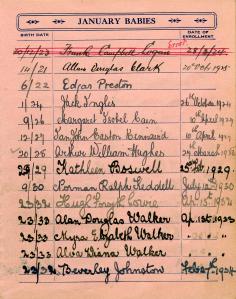 JANUARY BABIES
BIRTH DATE DATE OF ENROLLMENT
20/12/23 Frank Campbell Logan
14/21 Allan Douglas Clark 20th Oct. 1925
6/22 Edgar Preston
1/24 Jack Ingles 26th October 1924
9/26 Margaret Isobel Cain 10th April 1927
12/27 Easton Kennaird 10th April
20/28 Arthur William Hughes March
29/29 Kathleen Boswell 1929
9/30 Norman Ralph Geddell July 1930
23/32 Hugh Forsyth
23/33 Alan Douglas Walker Apr. 1st 1933
23/33 Myra Elizabeth Walker
23/33 Alva Diana Walker
23/ Beverley Johnston Feb. 1934